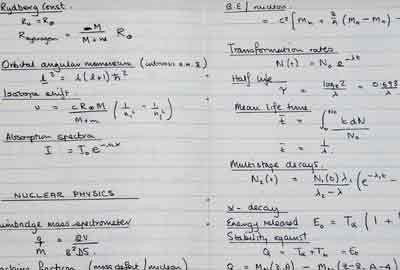 Rydberg Const.
R₀ = R∞
R_hydrogen = M / (M + m) R∞
Orbital angular momentum (intrinsic o.m. g)
l² = l(l+1)ħ²
Isotope shift.
υ = cR∞M / (M+m) (1/n₁² − 1/n₂²)
Absorption spectra
I = I₀e^(-nαx)
NUCLEAR PHYSICS
mass spectrometer
q/m = 2V / B²D
fraction (mass defect / nucleon)
B.E / nucleon
= c² [Mn + Z/A (MH − Mn) −
Transformation rates
N(t) = N₀e^(-λt)
Half life
τ = loge2 / λ = 0.693 / λ
Mean life time
t̄ = ∫₀^N₀ t dN / N₀
t̄ = 1/λ
Multistage decays.
N₂(t) = N₁(0)λ₁ / (λ₂ − λ₁) (e^(-λ₁t −
α-decay
Energy released E₀ = Tα (1 +
Stability against
Q = Tα + Tb = E₀
Q = M (Z,A) − M (Z-2, A-4)